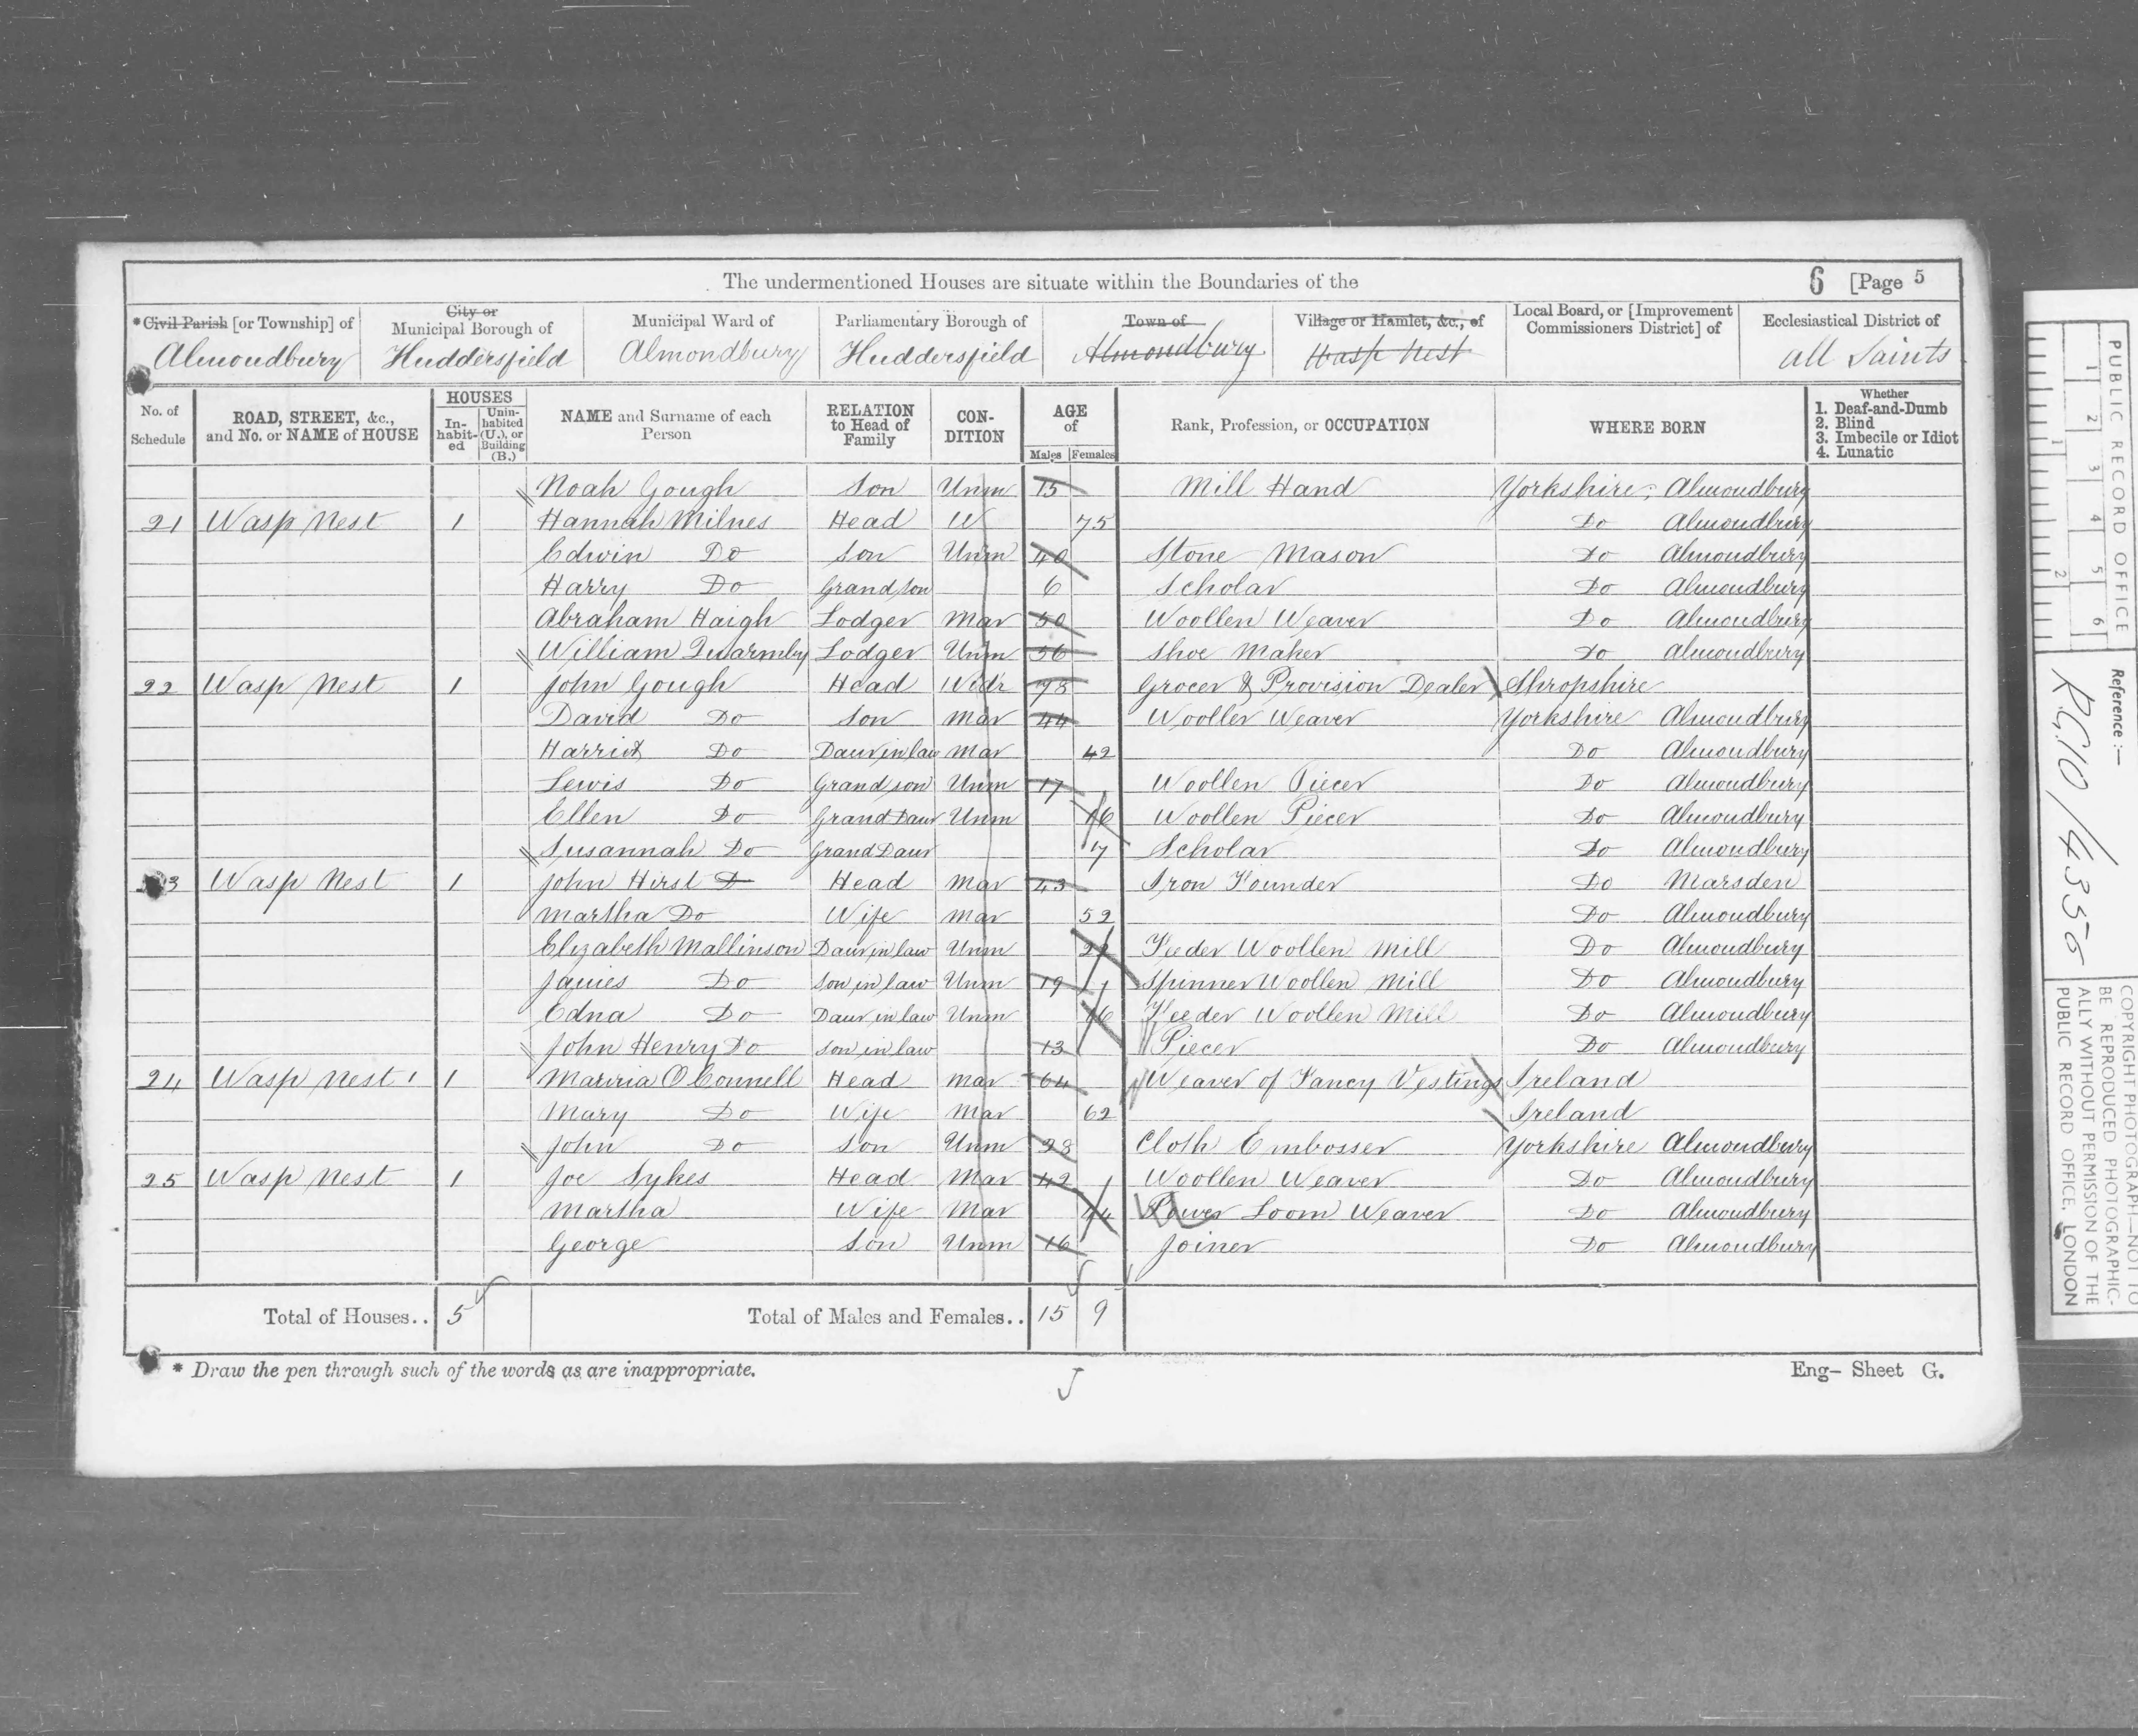 The undermentioned Houses are situate within the Boundaries of the 6 [Page 5
*Civil Parish [or Township] of Almondbury
City or Municipal Borough of Huddersfield
Municipal Ward of Almondbury
Parliamentary Borough of Huddersfield
Town of Almondbury
Village or Hamlet, &c., of Wasp Nest
Local Board, or [Improvement Commissioners District] of
Ecclesiastical District of All Saints
No. of Schedule
ROAD, STREET, &c., and No. or NAME of HOUSE
HOUSES
In-habit-ed
Unin-habited (U.), or Building (B.)
NAME and Surname of each Person
RELATION to Head of Family
CON-DITION
AGE of
Males Females
Rank, Profession, or OCCUPATION
WHERE BORN
Whether
1. Deaf-and-Dumb
2. Blind
3. Imbecile or Idiot
4. Lunatic
Noah Gough Son Unm 15 Mill Hand Yorkshire; Almondbury
21 Wasp Nest 1 Hannah Milnes Head W 75 Do Almondbury
Edwin Do Son Unm 40 Stone Mason Do Almondbury
Harry Do Grandson 6 Scholar Do Almondbury
Abraham Haigh Lodger Mar 50 Woollen Weaver Do Almondbury
William Quarmby Lodger Unm 56 Shoe Maker Do Almondbury
22 Wasp Nest 1 John Gough Head Widr 78 Grocer & Provision Dealer Shropshire
David Do Son Mar 44 Woollen Weaver Yorkshire Almondbury
Harriet Do Daur in law Mar 42 Do Almondbury
Lewis Do Grandson Unm 17 Woollen Piecer Do Almondbury
Ellen Do Grand Daur Unm 16 Woollen Piecer Do Almondbury
Susannah Do Grand Daur 7 Scholar Do Almondbury
23 Wasp Nest 1 John Hirst D Head Mar 43 Iron Founder Do Marsden
Martha Do Wife Mar 52 Do Almondbury
Elizabeth Mallinson Daur in law Unm Feeder Woollen Mill Do Almondbury
James Do Son in law Unm 19 Spinner Woollen Mill Do Almondbury
Edna Do Daur in law Unm 16 Feeder Woollen Mill Do Almondbury
John Henry Do Son in law 13 Piecer Do Almondbury
24 Wasp Nest 1 O Connell Head Mar 64 Weaver of Fancy Vestings Ireland
Mary Do Wife Mar 62 Ireland
John Do Son Unm 28 Cloth Embosser Yorkshire Almondbury
25 Wasp Nest 1 Joe Sykes Head Mar 42 Woollen Weaver Do Almondbury
Martha Wife Mar 44 Power Loom Weaver Do Almondbury
George Son Unm 16 Joiner Do Almondbury
Total of Houses.. 5 Total of Males and Females.. 15 9
* Draw the pen through such of the words as are inappropriate.
Eng- Sheet G.
PUBLIC RECORD OFFICE
1 2 3 4 5 6
1 2
Reference:-
R.G. 10/4356
COPYRIGHT PHOTOGRAPH-NOT TO
BE REPRODUCED PHOTOGRAPHIC-
ALLY WITHOUT PERMISSION OF THE
PUBLIC RECORD OFFICE, LONDON